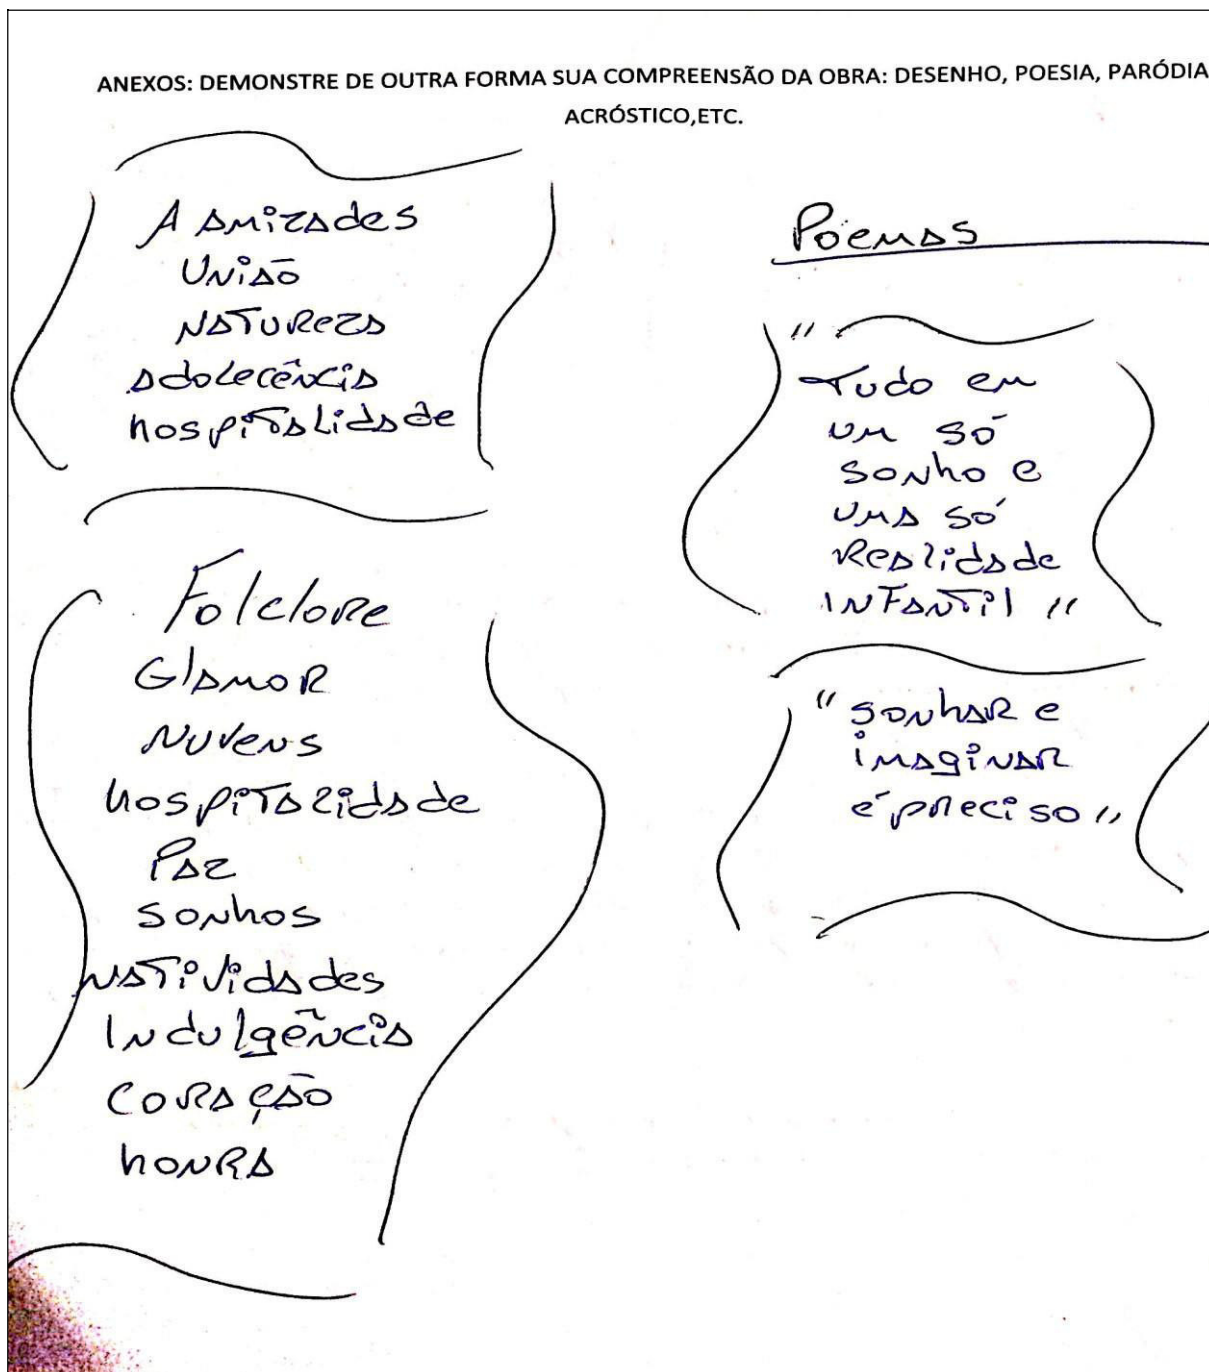 ANEXOS: DEMONSTRE DE OUTRA FORMA SUA COMPREENSÃO DA OBRA: DESENHO, POESIA, PARÓDIA
ACRÓSTICO,ETC.
A Amizades
União
Natureza
adolecência
hospitalidade
Folclore
Glamor
Nuvens
hospitalidade
Paz
sonhos
Natividades
Indulgência
Coração
honra
Poemas
"Tudo em
um só
sonho e
uma só
Realidade
INFANTil"
"Sonhar e
imaginar
é preciso"